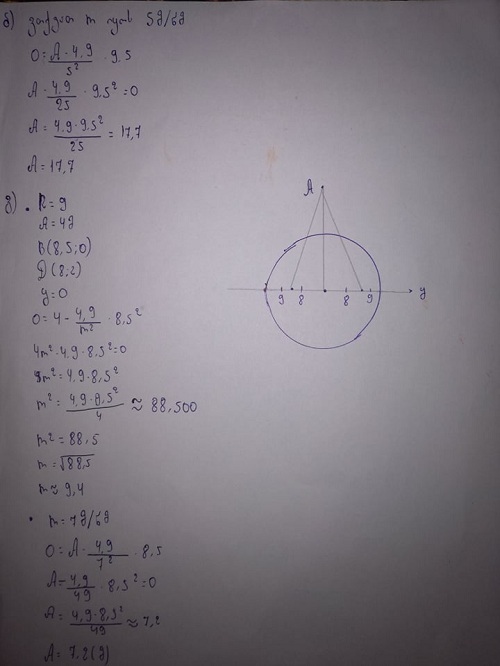 ბ) ვთქვათ m იყოს 5მ/წმ
0 = A - 4,9/5² · 9.5
A - 4,9/25 · 9.5² = 0
A = 4,9 · 9.5²/25 = 17,7
A = 17,7
R = 9
A = 4მ
B(8,5;0)
D(8,2)
y = 0
0 = 4 - 4,9/m² · 8,5²
4m² - 4,9 · 8,5² = 0
4m² = 4,9 · 8,5²
m² = 4,9 · 8,5²/4 ≈ 88,500
m² = 88,5
m = √88,5
m ≈ 9,4
• m = 7მ/წმ
0 = A - 4,9/7² · 8,5
A - 4,9/49 · 8,5² = 0
A = 4,9 · 8,5²/49 ≈ 7,2
A = 7,2(მ)
A
9 8 8 9 y